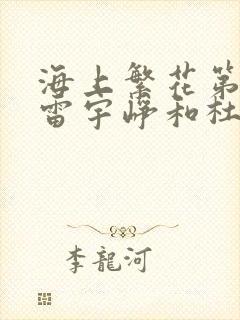 海上繁花第
雷宇峥和杜
李龍河